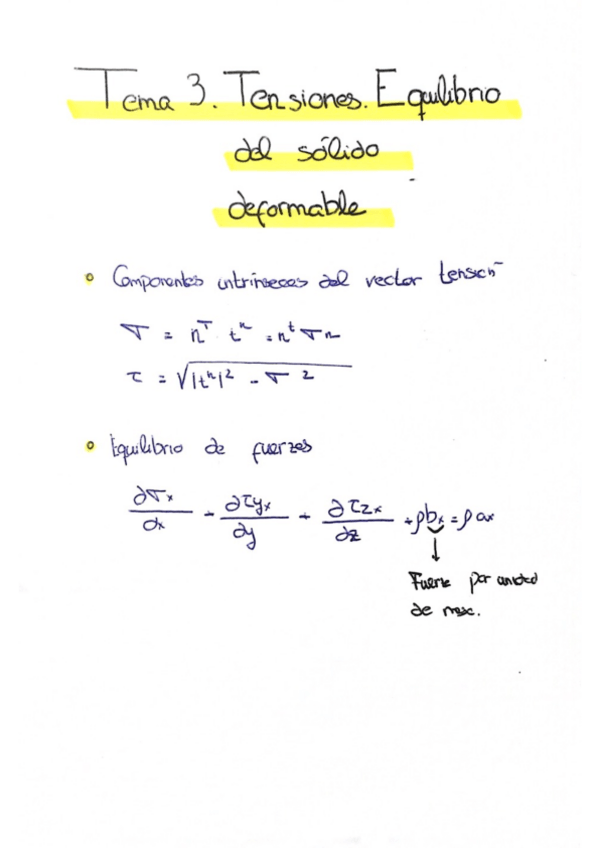 Tema 3. Tensiones. Equilibrio
del sólido
deformable
• Componentes intrínsecas del vector tensión
σ = n^T t^n = n^t σ n
τ = √(|t^n|² - σ²)
• Equilibrio de fuerzas
∂σx/∂x + ∂τyx/∂y + ∂τzx/∂z + ρbx = ρax
Fuerza por unidad
de masa.